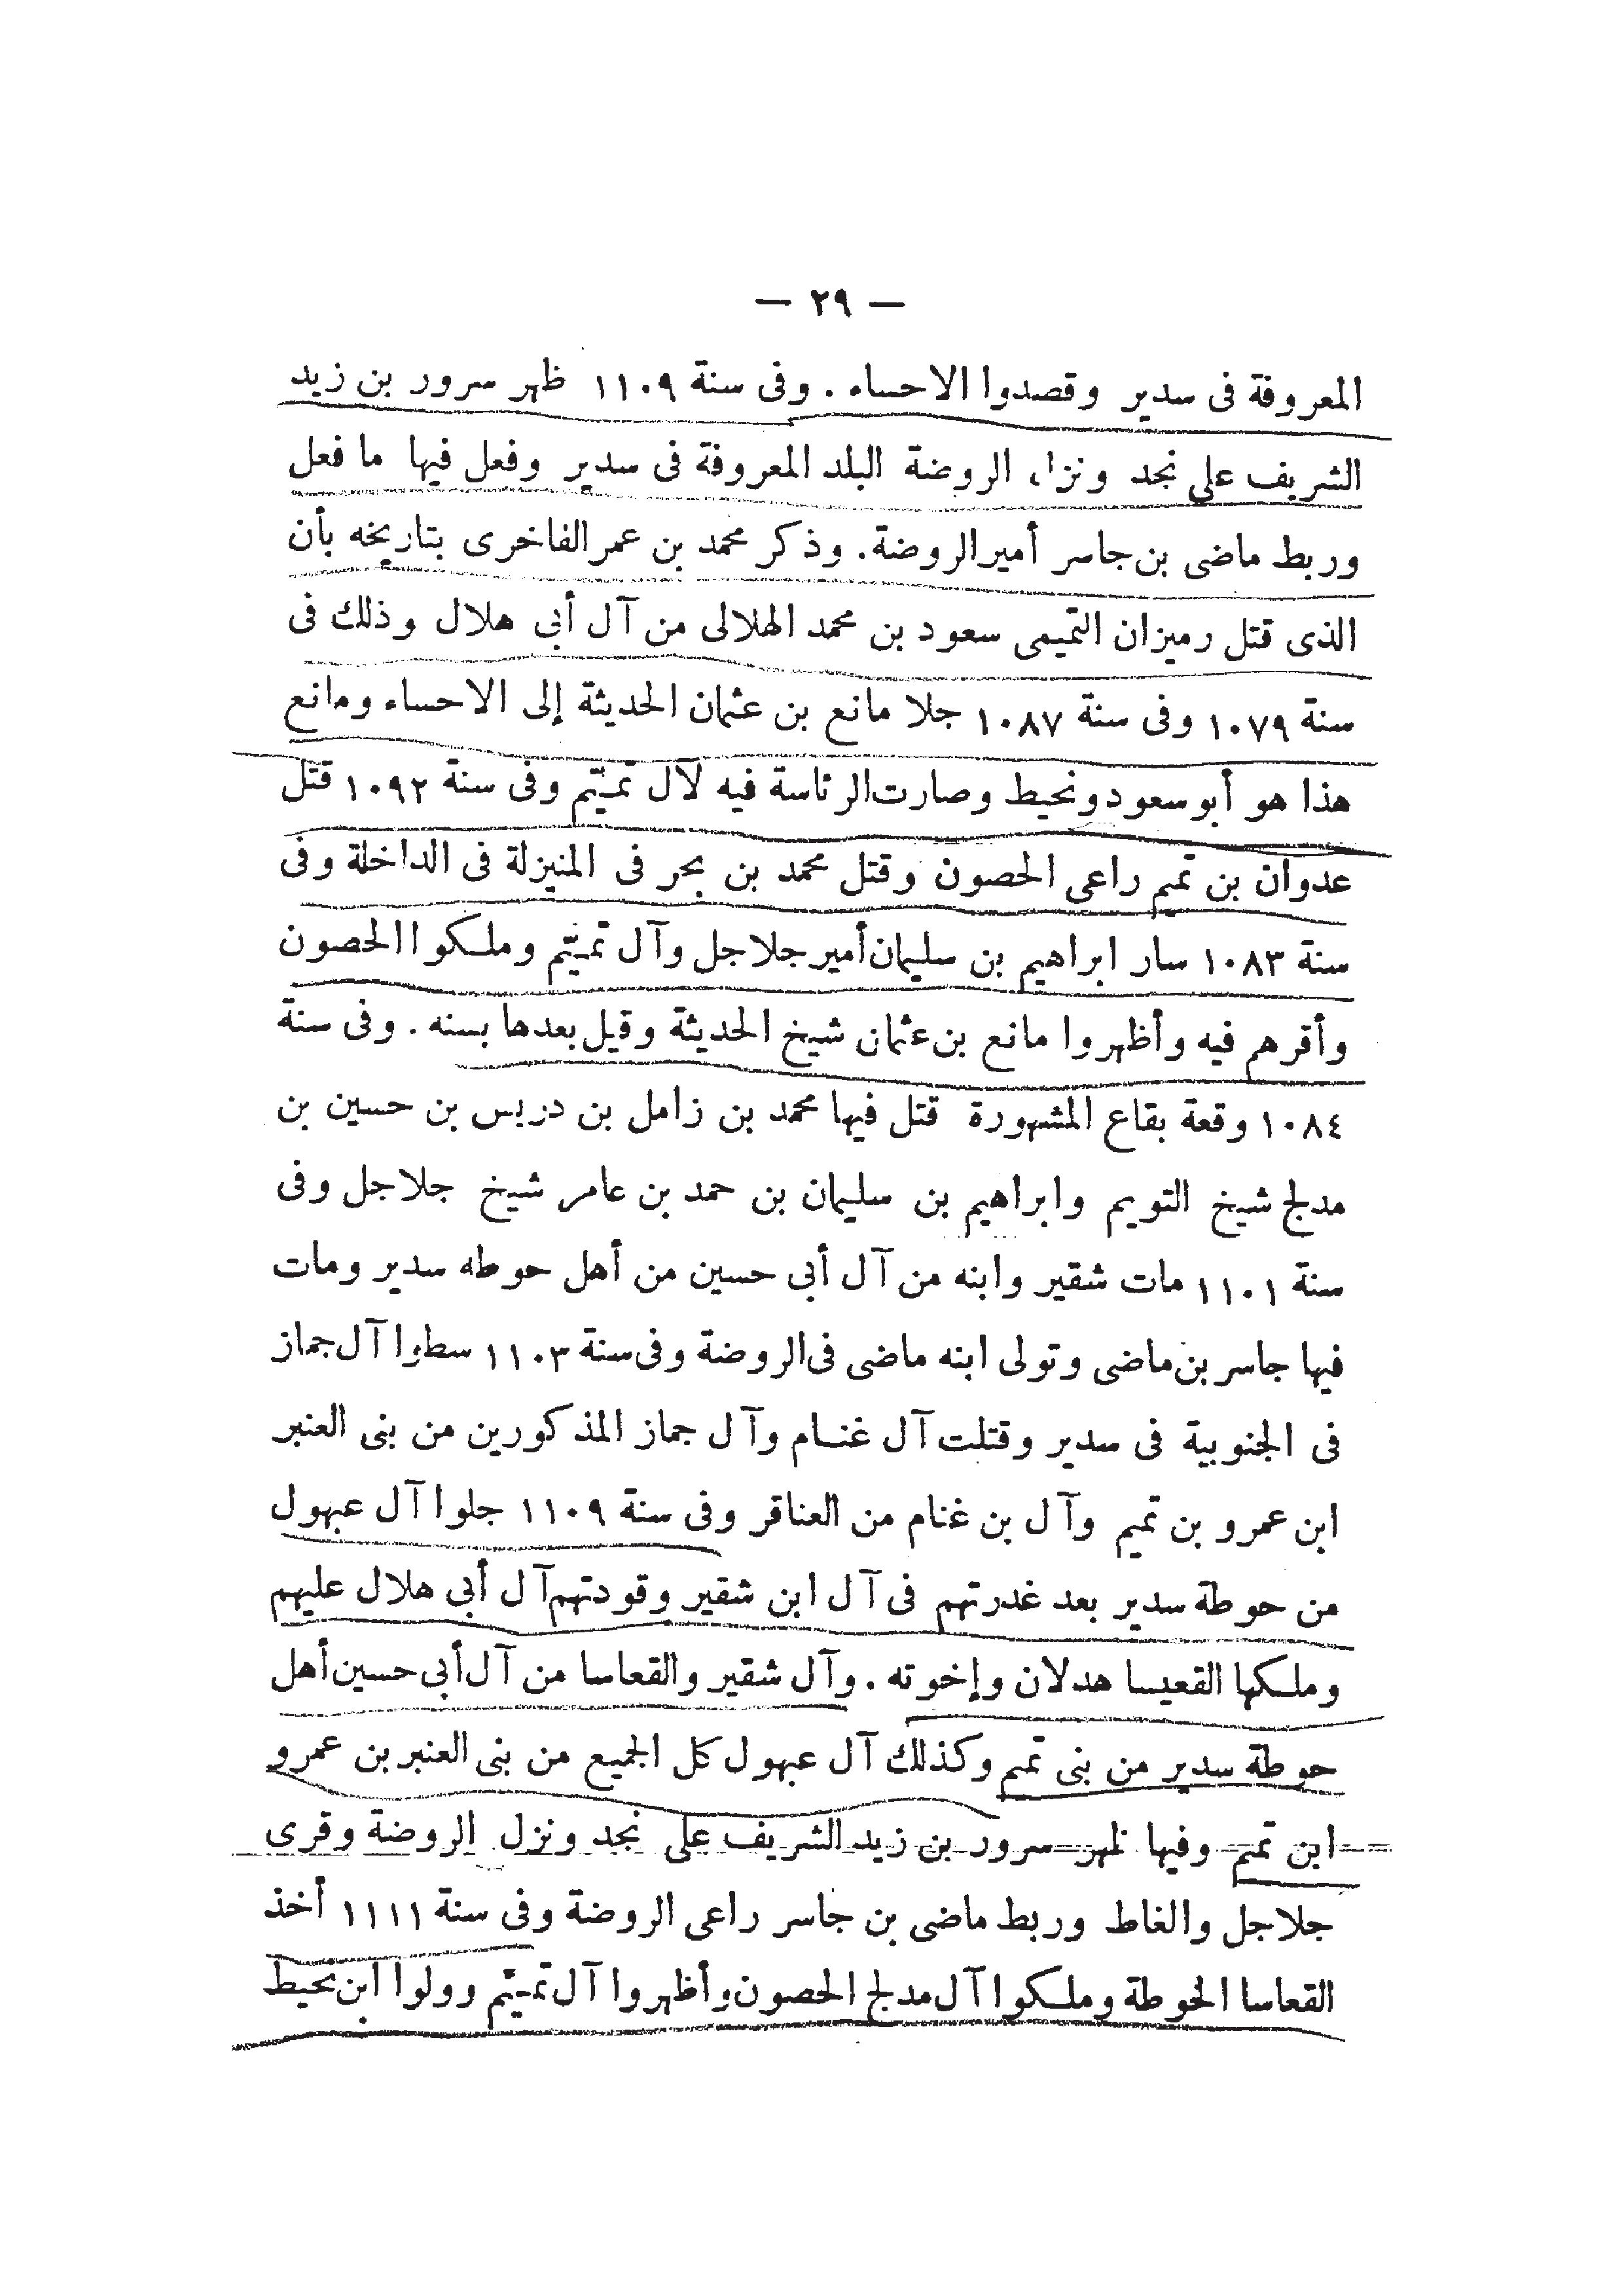 — ٢٩ —
المعروفة فى سدير وقصدوا الاحساء . وفى سنة ١١٠٩ ظهر سرور بن زيد
الشريف على نجد ونزل الروضة البلد المعروفة فى سدير وفعل فيها ما فعل
وربط ماضى بن جاسر أمير الروضة. وذكر محمد بن عمر الفاخرى بتاريخه بأن
الذى قتل رميزان التميمى سعود بن محمد الهلالى من آل أبي هلال وذلك فى
سنة ١٠٧٩ وفى سنة ١٠٨٧ جلا مانع بن عثمان الحديثة إلى الاحساء ومانع
هذا هو أبو سعود ونحيط وصارت الرئاسة فيه لآل تميّم وفى سنة ١٠٩٢ قتل
عدوان بن تميم راعى الحصون وقتل محمد بن بحر فى المنيزلة فى الداخلة وفى
سنة ١٠٨٣ سار ابراهيم بن سليمان أمير جلاجل وآل تميّم وملكوا الحصون
وأقرهم فيه وأظهروا مانع بن عثمان شيخ الحديثة وقيل بعدها بسنه . وفى سنة
١٠٨٤ وقعة بقاع المشهورة قتل فيها محمد بن زامل بن دريس بن حسين بن
مدلج شيخ التويم وابراهيم بن سليمان بن حمد بن عامر شيخ جلاجل وفى
سنة ١١٠١ مات شقير وابنه من آل أبي حسين من أهل حوطه سدير ومات
فيها جاسر بن ماضى وتولى ابنه ماضى فى الروضة وفى سنة ١١٠٣ سطوا آل جماز
فى الجنوبية فى سدير وقتلت آل غنام وآل جماز المذكورين من بنى العنبر
ابن عمرو بن تميم وآل بن غنام من العناقر وفى سنة ١١٠٩ جلوا آل عبهول
من حوطة سدير بعد غدرتهم فى آل ابن شقير وقودتهم آل أبي هلال عليهم
وملكها القعيسا هدلان وإخوته . وآل شقير والقعاسا من آل أبي حسين أهل
حوطة سدير من بنى تميم وكذلك آل عبهول كل الجميع من بنى العنبر بن عمرو
ابن تميم وفيها ظهر سرور بن زيد الشريف على نجد ونزل الروضة وقرى
جلاجل والغاط وربط ماضى بن جاسر راعى الروضة وفى سنة ١١١١ أخذ
القعاسا الحوطة وملكوا آل مدلج الحصون وأظهروا آل تميّم وولوا ابن نحيط